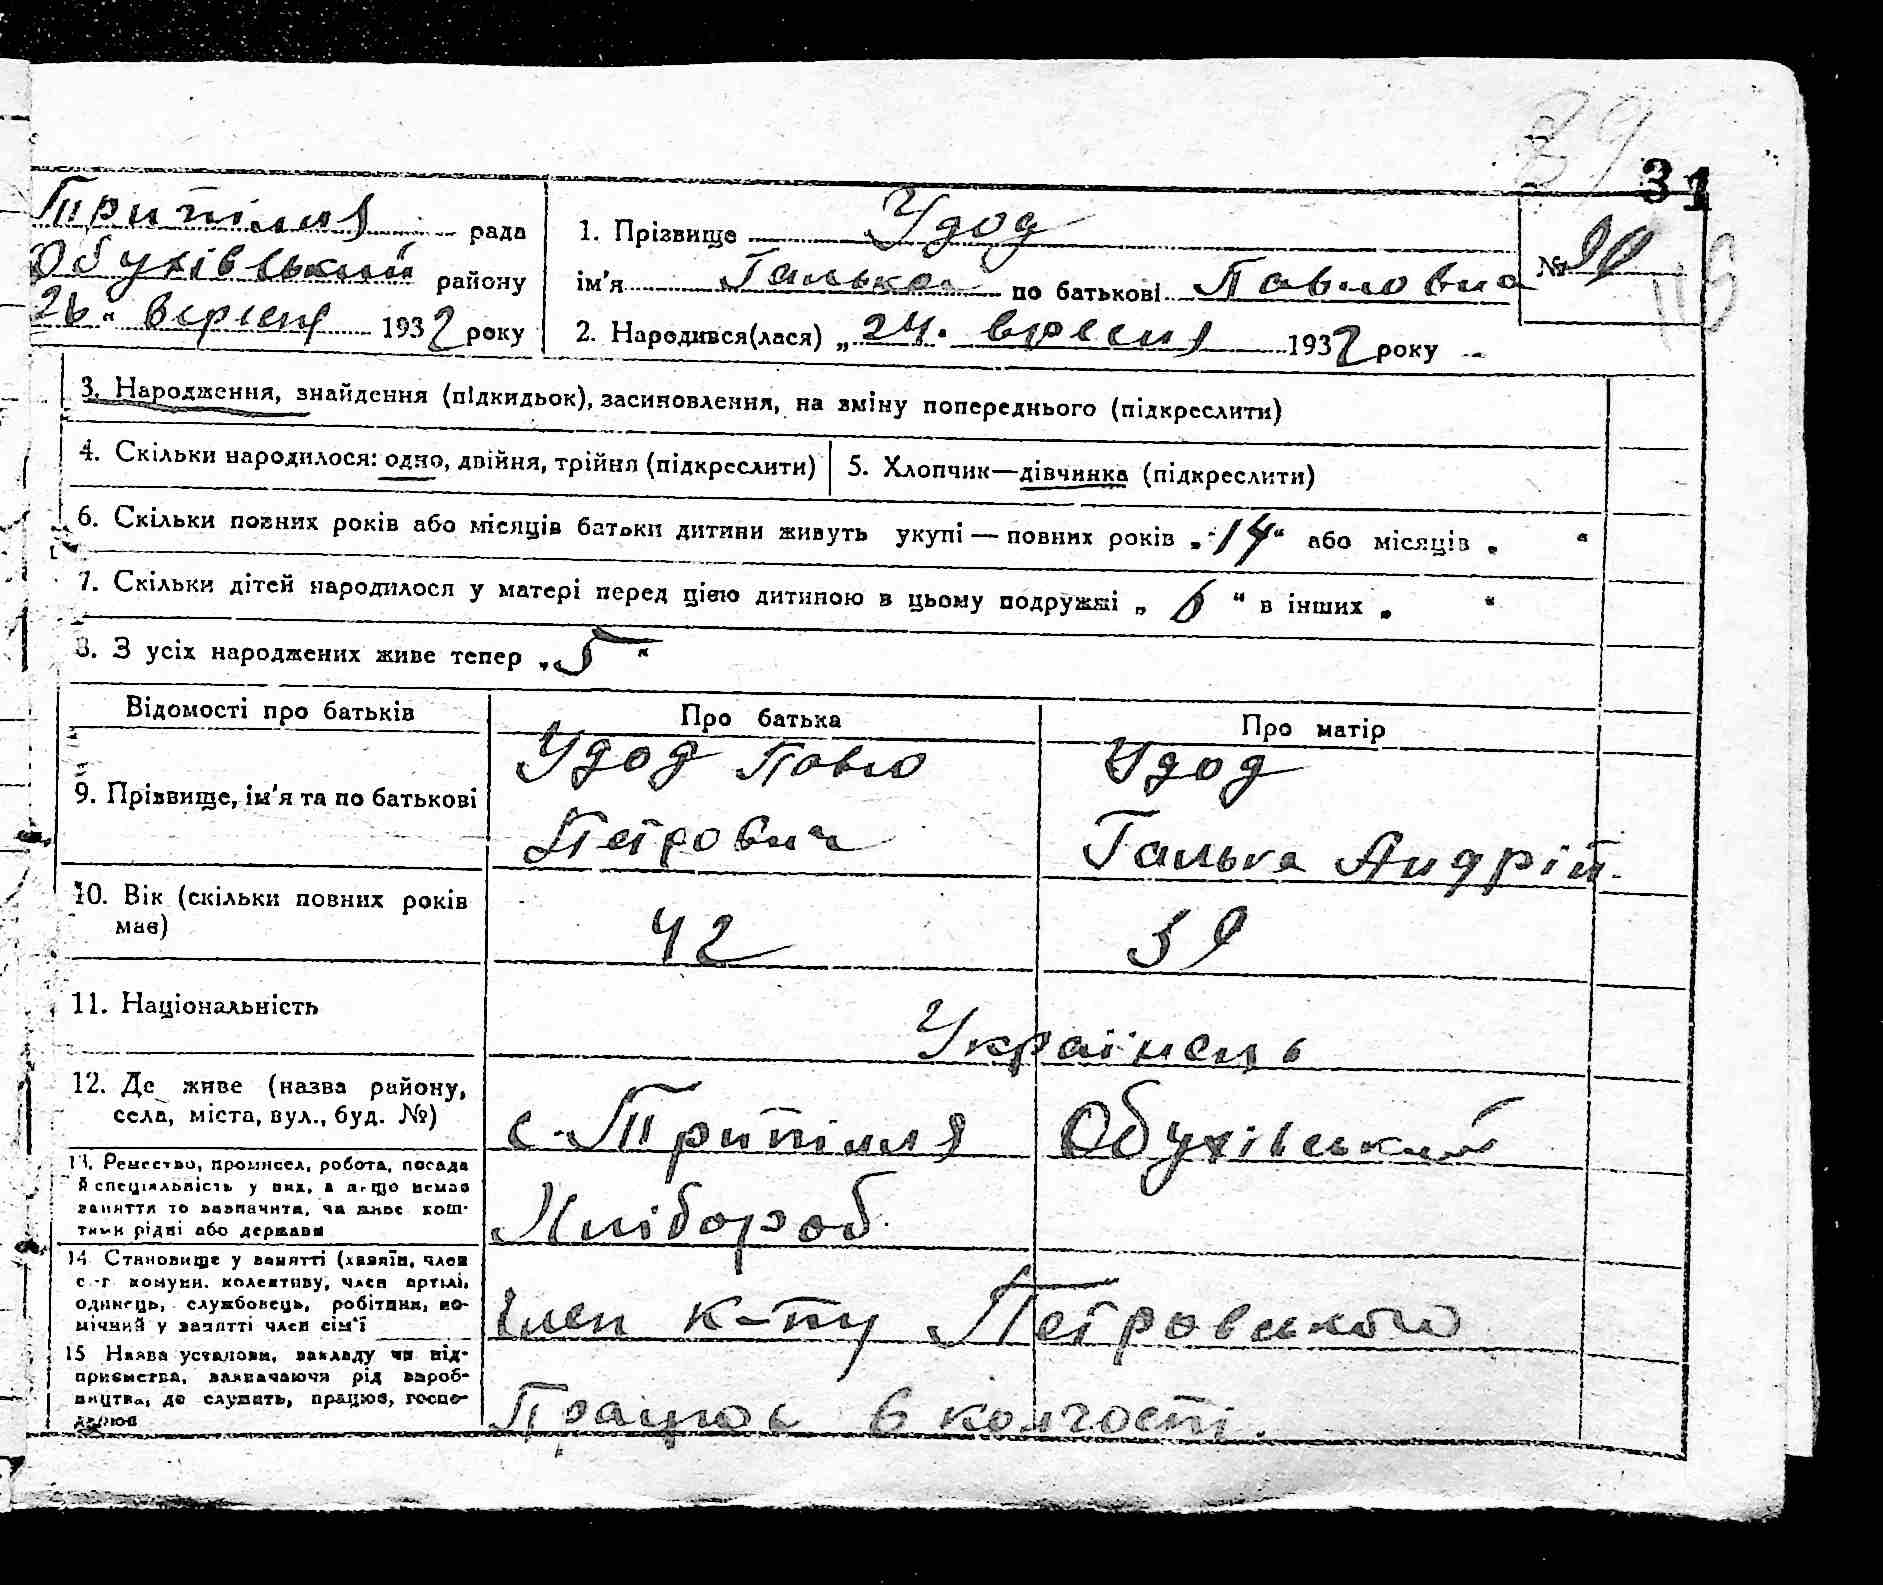 39
31
Трипілля рада
Обухівський району
26 " вересня 1932 року
1. Прізвище Удод
ім'я Галька по батькові Павловна
№ 90
2. Народився(лася) „ 24. вересня 1932 року
3. Народження, знайдення (підкидьок), засиновлення, на зміну попереднього (підкреслити)
4. Скільки народилося: одно, двійня, трійня (підкреслити)
5. Хлопчик—дівчинка (підкреслити)
6. Скільки повних років або місяців батьки дитини живуть укупі — повних років „ 14 " або місяців „ "
7. Скільки дітей народилося у матері перед цією дитиною в цьому подружжі „ 6 " в інших „ "
8. З усіх народжених живе тепер „ 5 "
Відомості про батьків
Про батька
Про матір
9. Прізвище, ім'я та по батькові
Удод Павло
Петрович
Удод
Галька Андрій.
10. Вік (скільки повних років
має)
42
39
11. Національність
Українець
12. Де живе (назва району,
села, міста, вул., буд. №)
с. Трипілля Обухівський
13. Ремество, промисел, робота, посада
й спеціяльність у них, а якщо немає
заняття то зазначити, чи живе кош-
тами рідні або держави
Хлібороб
14 Становище у занятті (хазяїн, член
с.-г комуни, колективу, член артілі,
одинець, службовець, робітник, по-
мічний у занятті член сім'ї
член к-пу Петровського
15 Назва установи, закладу чи під-
приємства, зазначаючи рід вироб-
ництва, де служить, працює, госпо-
дарює
Працює в колгоспі.